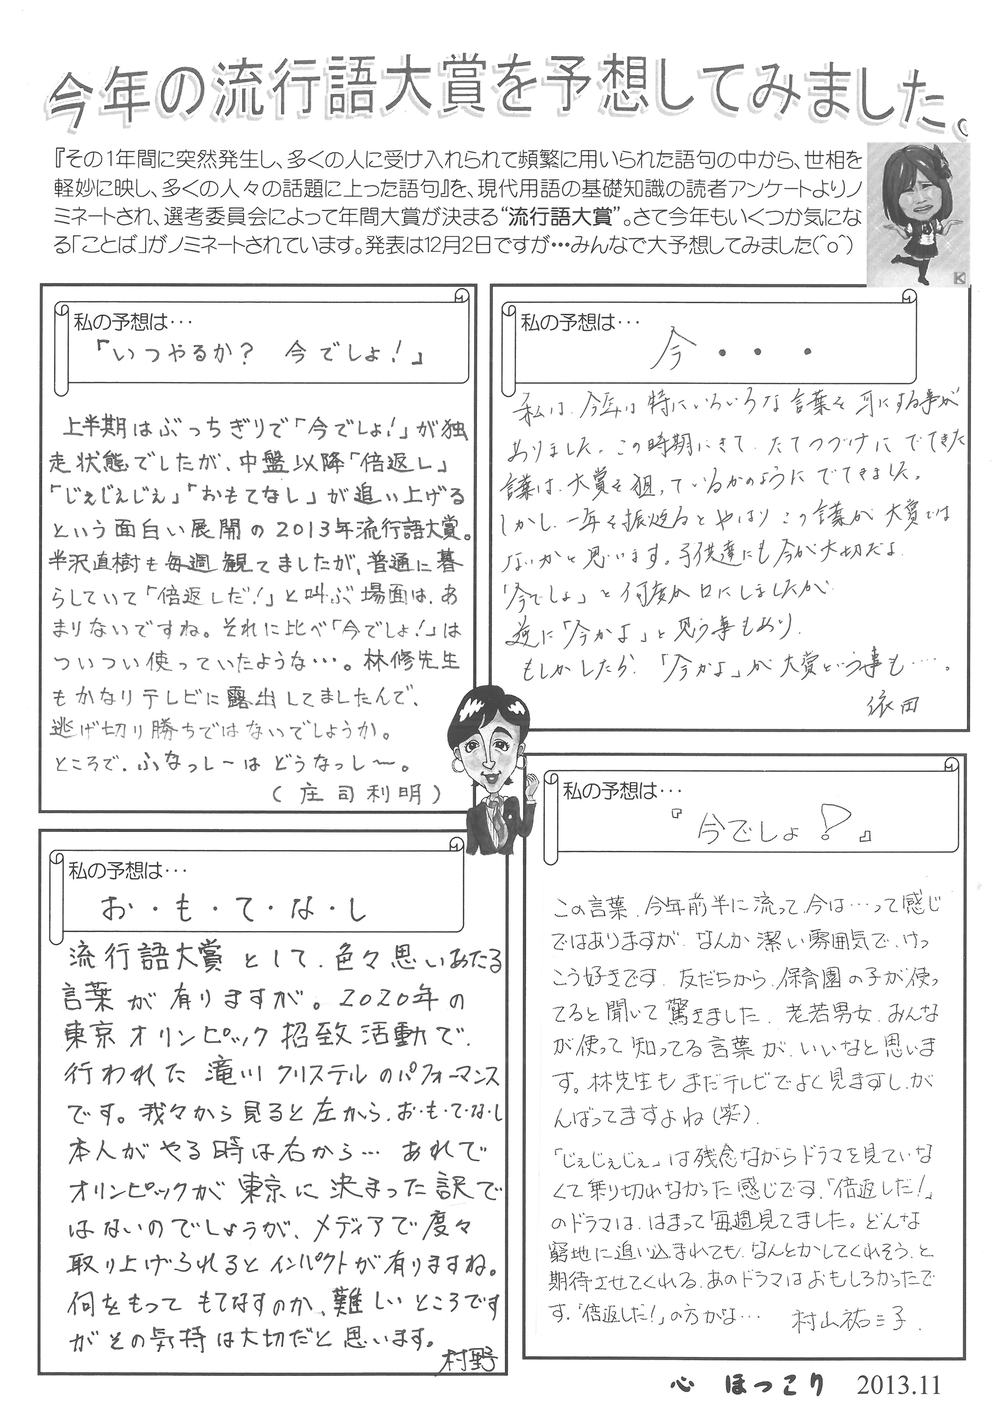 今年の流行語大賞を予想してみました。
『その1年間に突然発生し、多くの人に受け入れられて頻繁に用いられた語句の中から、世相を
軽妙に映し、多くの人々の話題に上った語句』を、現代用語の基礎知識の読者アンケートよりノ
ミネートされ、選考委員会によって年間大賞が決まる“流行語大賞”。さて今年もいくつか気にな
る「ことば」がノミネートされています。発表は12月2日ですが…みんなで大予想してみました(^o^)
私の予想は…
「いつやるか？ 今でしょ！」
上半期はぶっちぎりで「今でしょ！」が独
走状態でしたが、中盤以降「倍返し」
「じぇじぇじぇ」「おもてなし」が追い上げる
という面白い展開の2013年流行語大賞。
半沢直樹も毎週観てましたが、普通に暮
らしていて「倍返しだ！」と叫ぶ場面は、あ
まりないですね。それに比べ「今でしょ！」は
ついつい使っていたような…。林修先生
もかなりテレビに露出してましたんで、
逃げ切り勝ちではないでしょうか。
ところで、ふなっしーは どうなっし〜。
(庄司利明)
私の予想は…
今・・・
私は、今年は特にいろいろな言葉を耳にする事が
ありました。この時期にきて、たてつづけにでてきた
言葉は、大賞を狙っているかのようにでてきました。
しかし、一年を振返るとやはりこの言葉が大賞では
ないかと思います。子供達にも今が大切だよ、
「今でしょ」と何度か口にしましたが
逆に「今かよ」と思う事もあり、
もしかしたら、「今かよ」が大賞という事も…。
依田
私の予想は…
お・も・て・な・し
流行語大賞として、色々思いあたる
言葉が有りますが。2020年の
東京オリンピック招致活動で、
行われた滝川クリステルのパフォーマンス
です。我々から見ると左から、お・も・て・な・し
本人がやる時は右から… あれで
オリンピックが東京に決まった訳で
はないのでしょうが、メディアで度々
取り上げられるとインパクトが有りますね。
何をもって もてなすのか、難しいところです
がその気持は大切だと思います。
村野
私の予想は…
『今でしょ！』
この言葉、今年前半に流って、今は…って感じ
ではありますが、なんか潔い雰囲気で、けっ
こう好きです。友だちから、保育園の子が使っ
てると聞いて驚きました。老若男女、みんな
が使って知ってる言葉が、いいなと思いま
す。林先生もまだテレビでよく見ますし、が
んばってますよね(笑)。
「じぇじぇじぇ」は残念ながらドラマを見ていな
くて乗り切れなかった感じです。「倍返しだ！」
のドラマは、はまって毎週見てました。どんな
窮地に追い込まれても、なんとかしてくれそう、と
期待させてくれる、あのドラマはおもしろかったで
す。「倍返しだ！」の方かな… 村山祐三子
心 ほっこり 2013.11